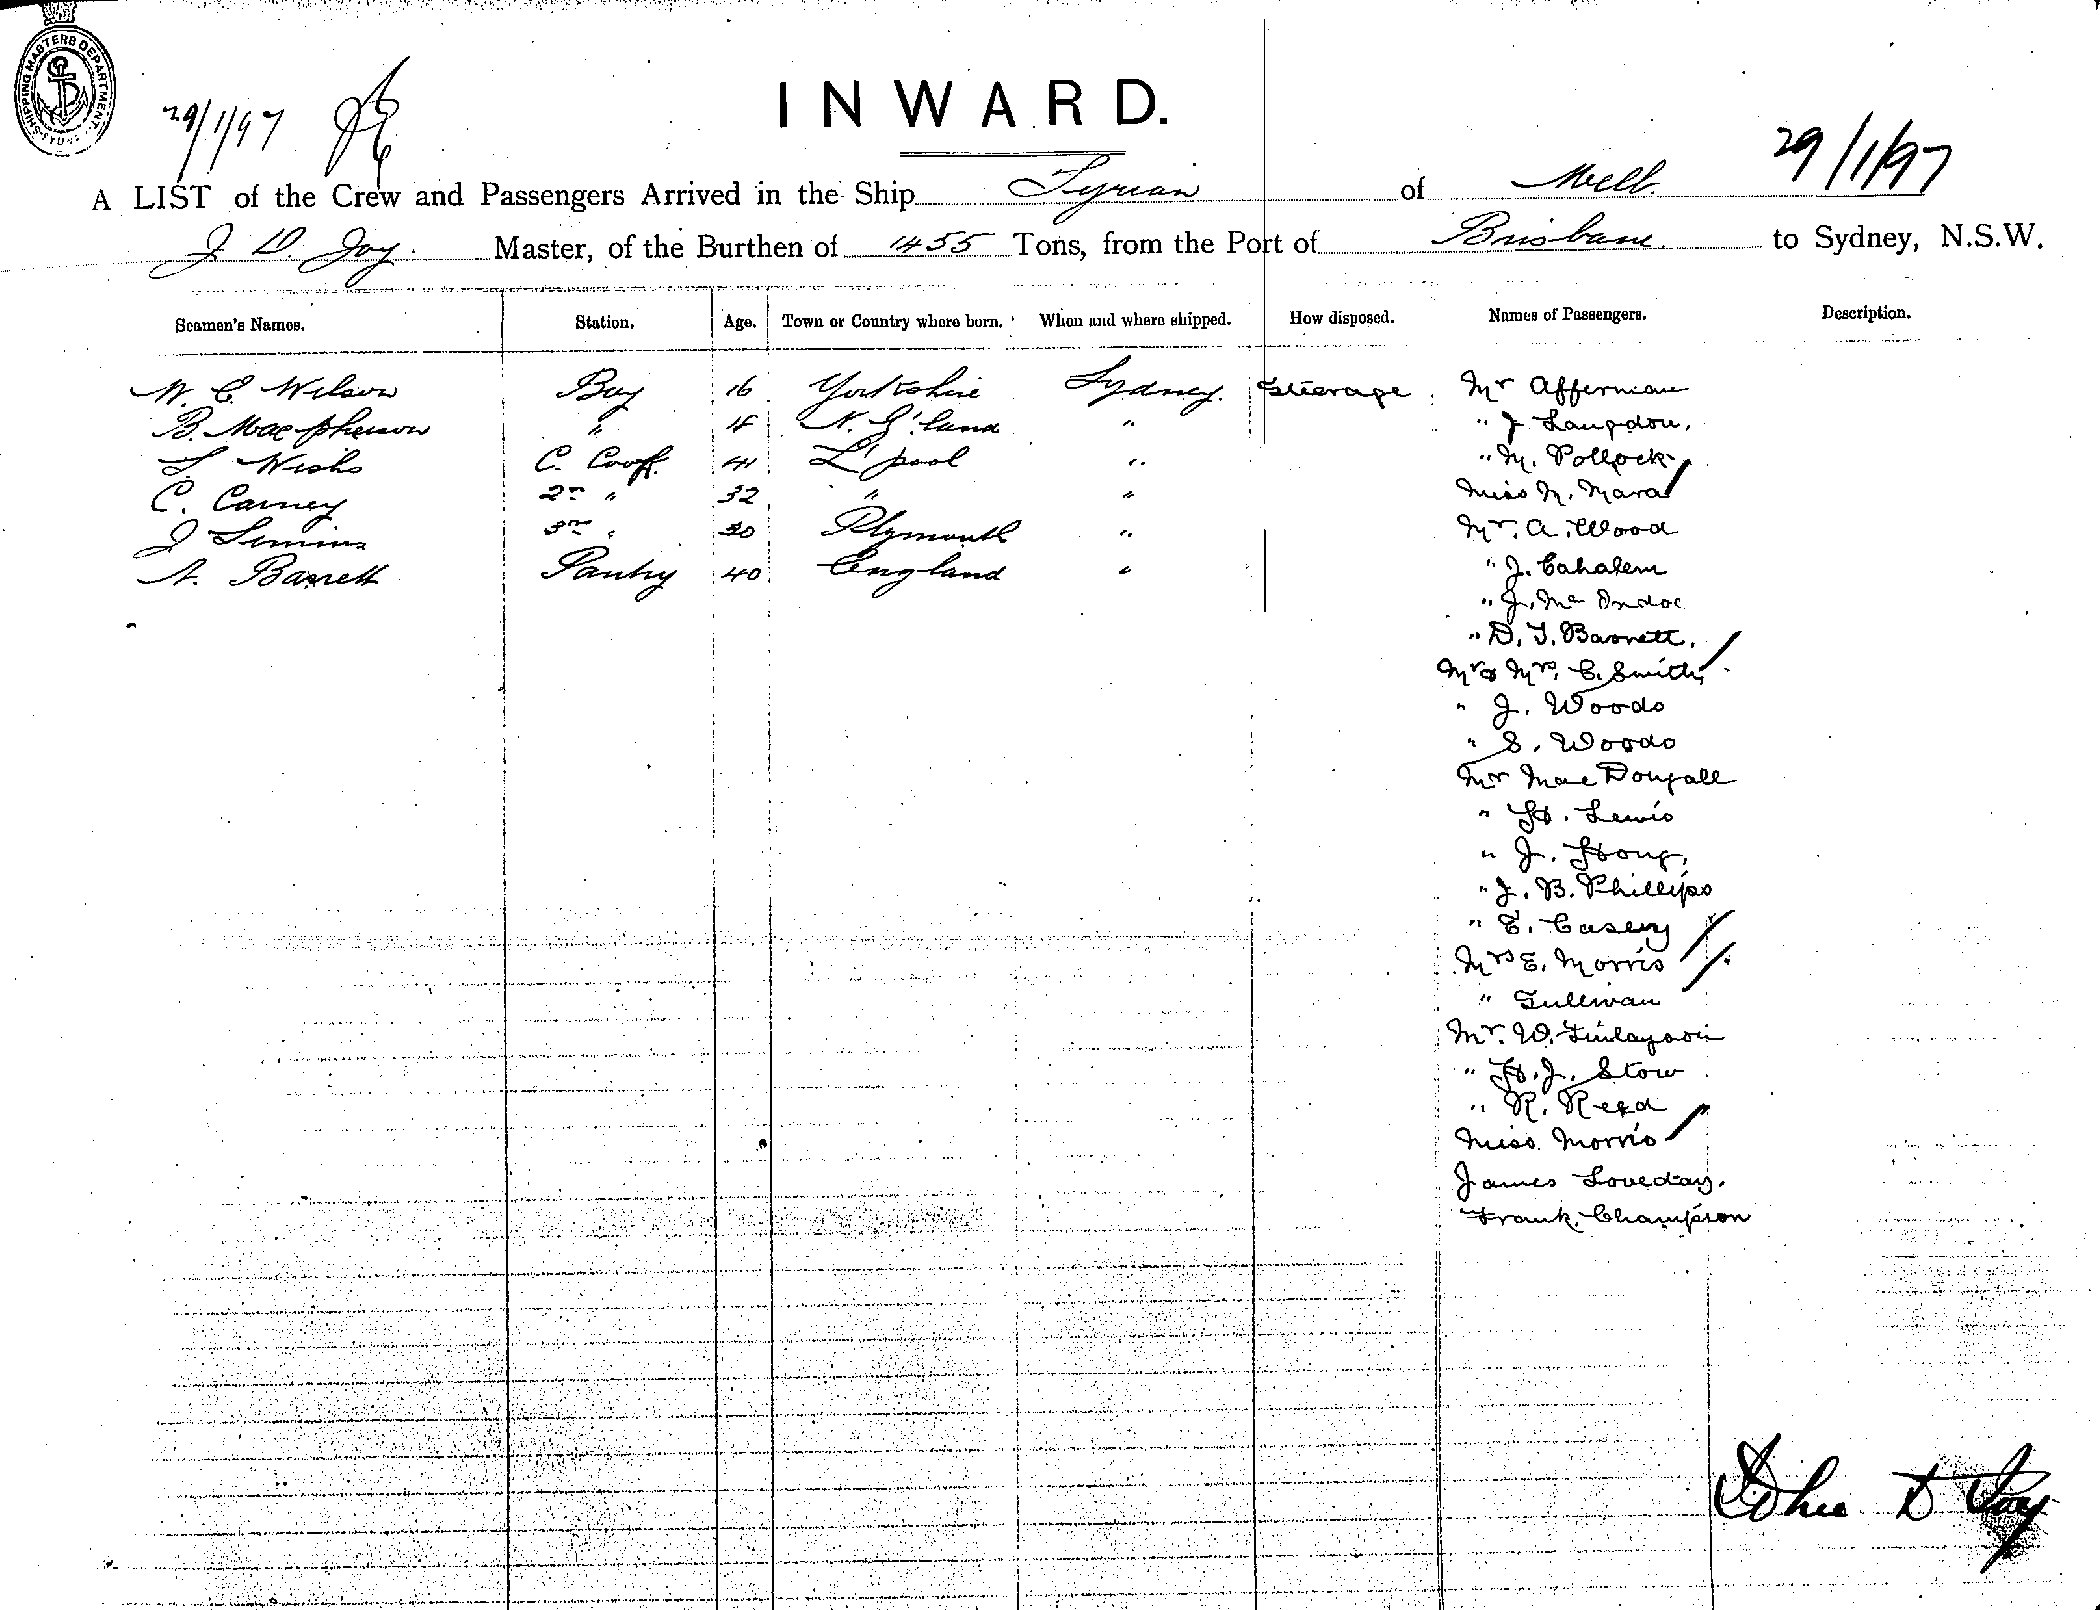 SHIPPING MASTERS DEPARTMENT
29/1/97
INWARD.
29/1/97
A LIST of the Crew and Passengers Arrived in the Ship Tyrian of Melb.
J D. Joy. Master, of the Burthen of 1455 Tons, from the Port of Brisbane. to Sydney, N.S.W.
Seamen's Names. Station. Age. Town or Country where born. When and where shipped. How disposed. Names of Passengers. Description.
W. C. Wilson Boy 16 Yorkshire Sydney. Steerage Mr Afferman
B. Macpherson " N. S'land " " J Langdon.
C. Cook 41 L'pool " " M. Pollock
C. Carney 2nd " 32 " " Miss M. Mara
J 3rd " Plymouth " Mr. A. Wood
A. Barrett Pantry 40 England " " J. Cahalem
" J. Mc Indoe
" D. T. Barrett.
Mr & Mrs. C. Smith
" J. Woods
" S. Woods
Mr MacDougall
" H. Lewis
" J. Hong.
" J. B. Phillips
" E. Casey
Mrs E. Morris
" Sullivan
Mr. W. Finlayson
" H. J. Stow
" R. Reed
Miss Morris
James Loveday.
Frank. Champion
John D Joy